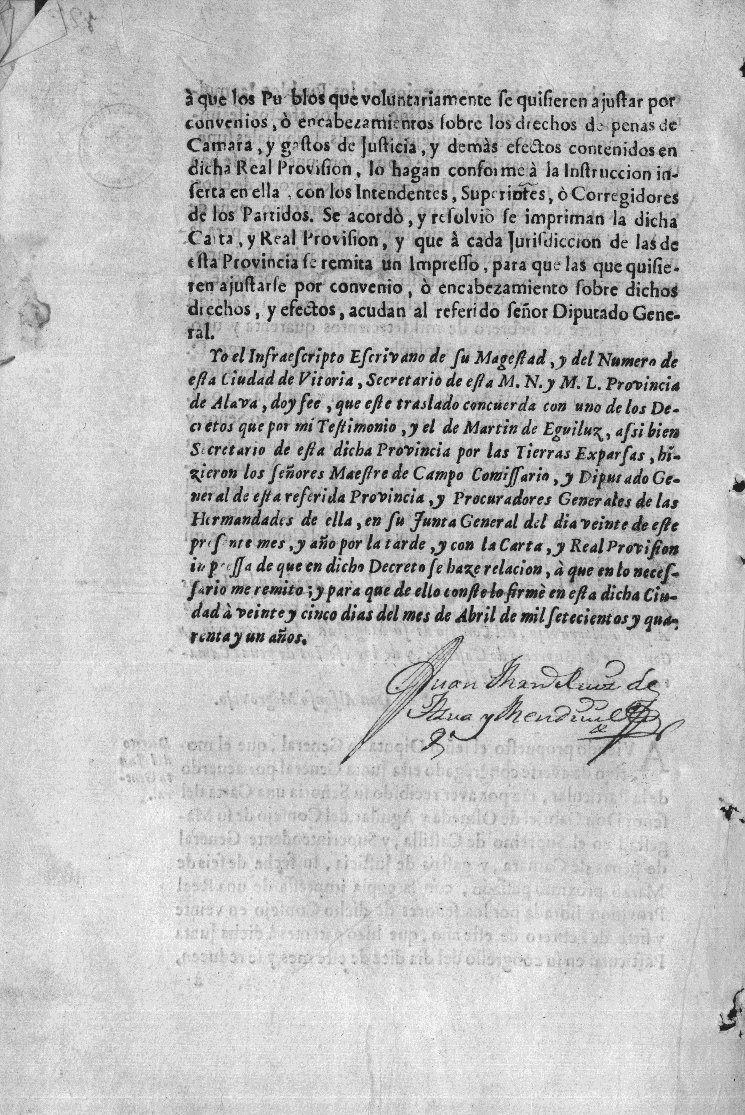 à que los Pueblos que voluntariamente se quisieren ajustar por
convenios, ò encabezamientos sobre los drechos de penas de
Camara, y gastos de Justicia, y demàs efectos contenidos en
dicha Real Provision, lo hagan conforme à la Instruccion in-
serta en ella, con los Intendentes, Superintẽtes, ò Corregidores
de los Partidos. Se acordò, y resolviò se impriman la dicha
Carta, y Real Provision, y que à cada Jurisdiccion de las de
esta Provincia se remita un Impresso, para que las que quisie-
ren ajustarse por convenio, ò encabezamiento sobre dichos
drechos, y efectos, acudan al referido señor Diputado Gene-
ral.
Yo el Infraescripto Escrivano de su Magestad, y del Numero de
esta Ciudad de Vitoria, Secretario de esta M. N. y M. L. Provincia
de Alava, doy fee, que este traslado concuerda con uno de los De-
cretos que por mi Testimonio, y el de Martin de Eguiluz, assi bien
Secretario de esta dicha Provincia por las Tierras Exparsas, hi-
zieron los señores Maestre de Campo Comissario, y Diputado Ge-
neral de esta referida Provincia, y Procuradores Generales de las
Hermandades de ella, en su Junta General del dia veinte de este
presente mes, y año por la tarde, y con la Carta, y Real Provision
impressa de que en dicho Decreto se haze relacion, à que en lo neces-
sario me remito; y para que de ello conste lo firmè en esta dicha Ciu-
dad à veinte y cinco dias del mes de Abril de mil setecientos y qua-
renta y un años.
Juan de
y